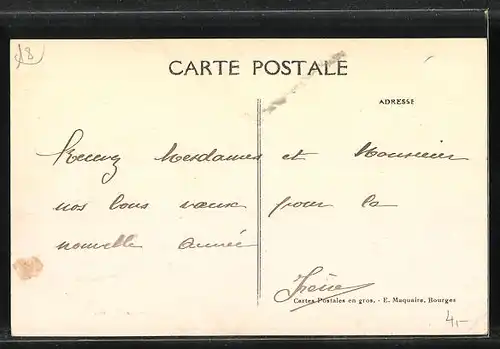 18
CARTE POSTALE
ADRESSE
Recevez Mesdames et Monsieur
nos bons vœux pour la
nouvelle année
Irène
Cartes Postales en gros. - E. Maquaire, Bourges
4,-